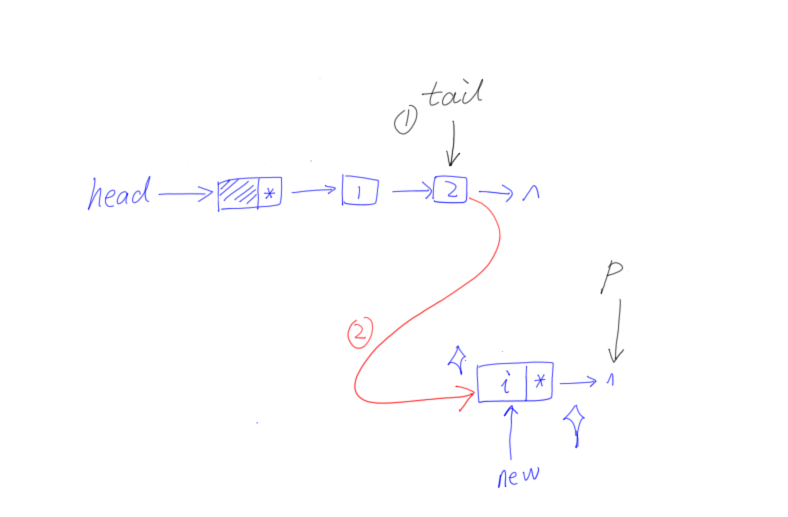 ① tail
head * 1 2 ^
p
②
i * ^
new